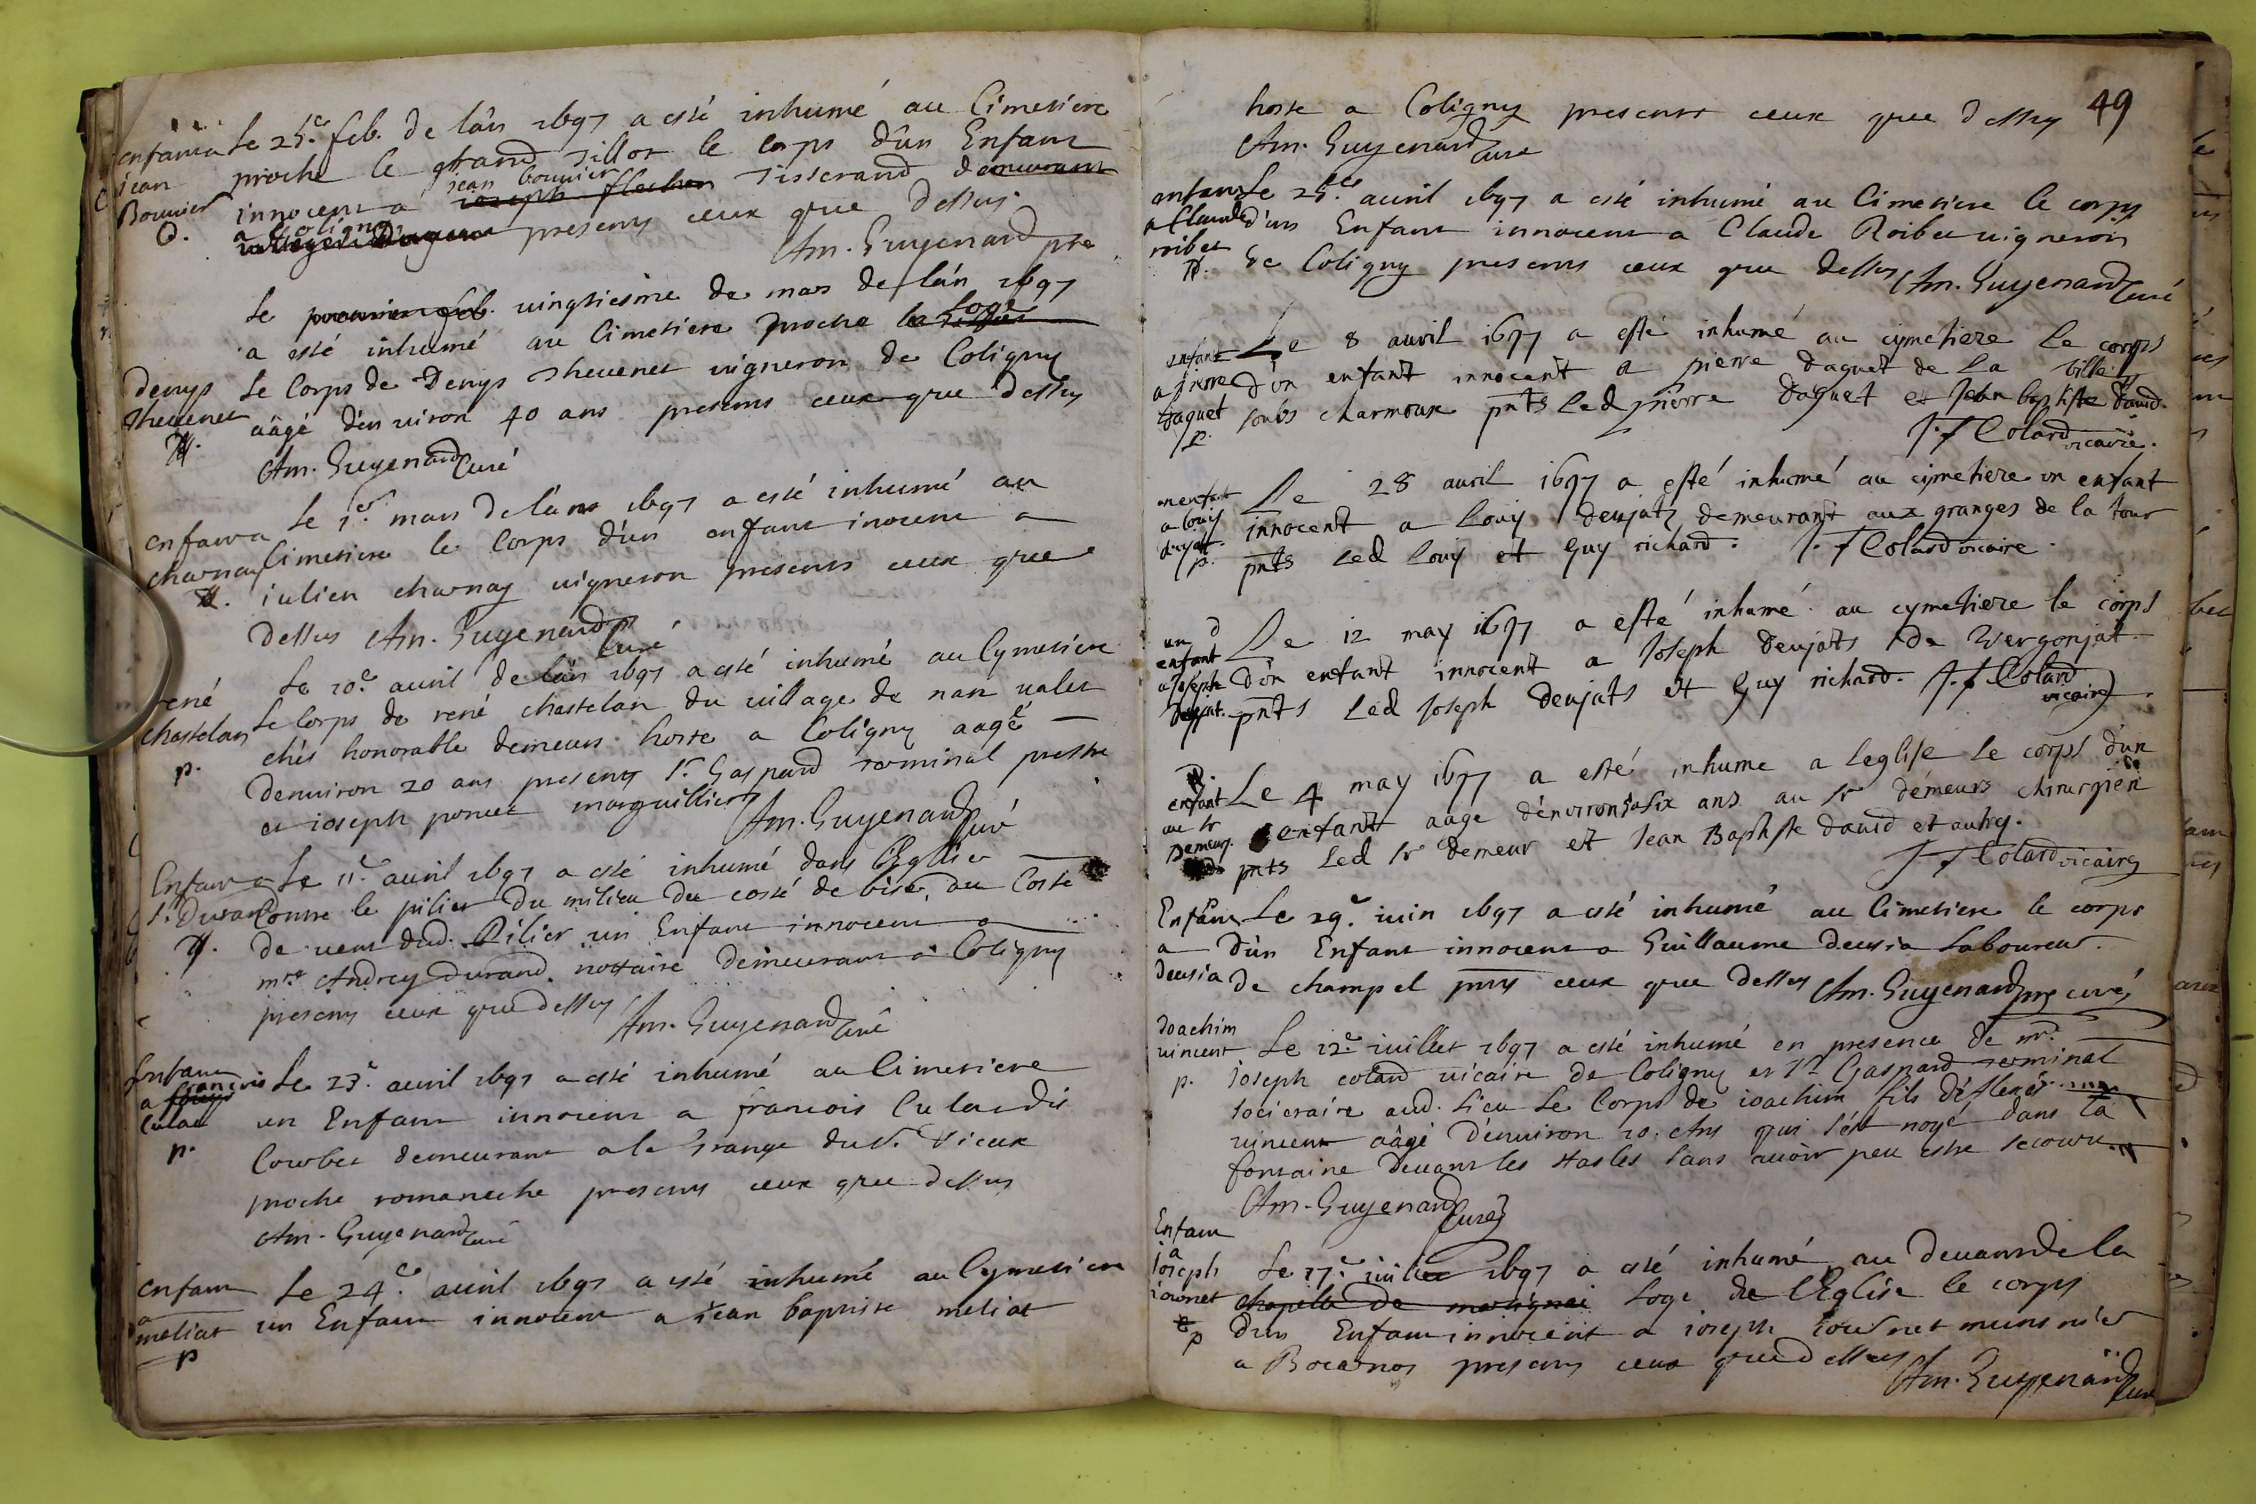 enfant a Le 25.e feb. de lân 1697 a esté inhumé au Cimetiere
jean proche le grand tillot le corps dûn Enfant
Bouvier innocent a jean bouvier joseph flechon tisserand demeurant
D. a Coligny presents ceux que dessus
Am. Guyenard pre
Le premier feb. vingtiesme de mars de lân 1697
a esté inhumé au Cimetiere proche la loge
denys Le Corps de Denys Thevenet vigneron de Coligny
Thevenet âagé dênviron 40 ans presents ceux que dessus
Am. Guyenard Curé
Le 1.er mars de lân 1697 a esté inhumé au
enfant a Cimetiere le Corps dûn enfant inocent a
charnay iulien charnay vigneron presents ceux que
dessus Am. Guyenard Curé
Le 10.e avril de lân 1697 a esté inhumé au Cymetiere
rené Le Corps de rené chastelan du village de nan valet
chastelan chés honorable demeurs hoste a Coligny aagé
p. denviron 20 ans presents Sr. Gaspard terminal prestre
et ioseph poncet marguilliers
Am. Guyenard Curé
Enfant a Le 11.e avril 1697 a esté inhumé dans l'Eglise
Sr. Durand Contre le pilier du milieu du costé de bise, au Costé
de vent dud. Pilier un Enfant innocent a
mre Andrey Durand nottaire demeurant a Coligny
presents ceux que dessus Am. Guyenard Curé
Enfant
a francois Le 23.e avril 1697 a esté inhumé au Cimetiere
Culat un Enfant innocent a francois Culat dit
p. Courbet demeurant a la Grange du Vieux
proche romaneche presents ceux que dessus
Am. Guyenard Curé
enfant Le 24.e avril 1697 a esté inhumé au Cymetiere
a meliat un Enfant innocent a iean baptiste meliat
p
49
hoste a Coligny presents ceux que dessus
Am. Guyenard Curé
enfant Le 25.e avril 1697 a esté inhumé au Cimetiere le corps
a Claude d'un Enfant innocent a Claude Roibet vigneron
roibet de Coligny presents ceux que dessus Am. Guyenard Curé
enfant Le 8 avril 1697 a esté inhumé au cymetiere le corps
a pierre d'un enfant innocent a pierre daguet de la ville
daguet soubs charmoux pnts led pierre daguet et Jean baptiste david.
p. J. f Colard vicaire.
un enfant Le 28 avril 1697 a esté inhumé au cymetiere un enfant
a louis innocent a Louis deujats demeurant aux granges de la tour
deujat. pnts led Louis et Guy richard. J. f Colard vicaire.
p.
un Le 12 may 1697 a esté inhumé au cymetiere le corps
enfant d'un enfant innocent a Joseph deujats de Vergonjat.
a Joseph pnts led Joseph deujats et Guy richard. J. f Colard
deujat. vicaire
enfant Le 4 may 1697 a esté inhume a leglise le corps d'un
au sr enfant aage denviron 5 a six ans au sr demeurs chirurgien
Demeurs. pnts led sr demeur et Jean Baptiste david et autres.
J. f Colard vicaire
Enfant Le 29.e iuin 1697 a esté inhumé au Cimetiere le corps
a dûn Enfant innocent a Guillaume deusia Laboureur.
deusia de champel pnts ceux que dessus Am. Guyenard pre curé
Joachim
vincent Le 12.e iuillet 1697 a esté inhumé en presence de mr.
p. ioseph colard vicaire de Coligny et Sr Gaspard terminal
societaire aud. Lieu Le Corps de ioachim fils
vincent âagé dênviron 10. Ans qui s'est noyé dans la
fontaine devant les Hasles sans avoir peu estre secouru
Am. Guyenard Curé
Enfant
a
ioseph Le 17.e iuillet 1697 a esté inhumé au devant de la
iournet chapelle de loge de l'Eglise le corps
p d'un Enfant innocent a ioseph iournet
a presents ceux que dessus
Am. Guyenard Curé